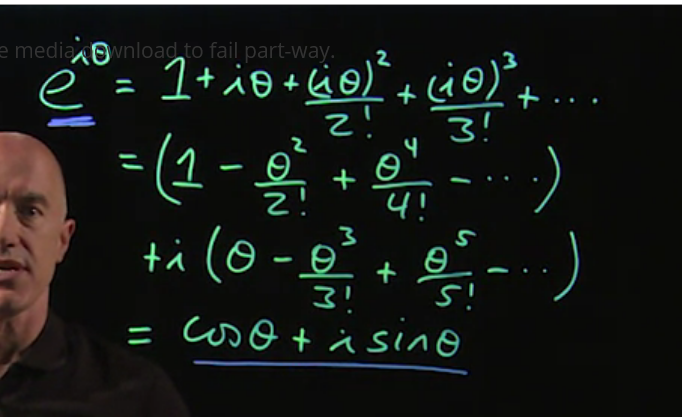 e media download to fail part-way.
e^{iθ} = 1 + iθ + (iθ)²/2! + (iθ)³/3! + ...
= (1 - θ²/2! + θ⁴/4! - ...)
+ i (θ - θ³/3! + θ⁵/5! - ...)
= cosθ + i sinθ